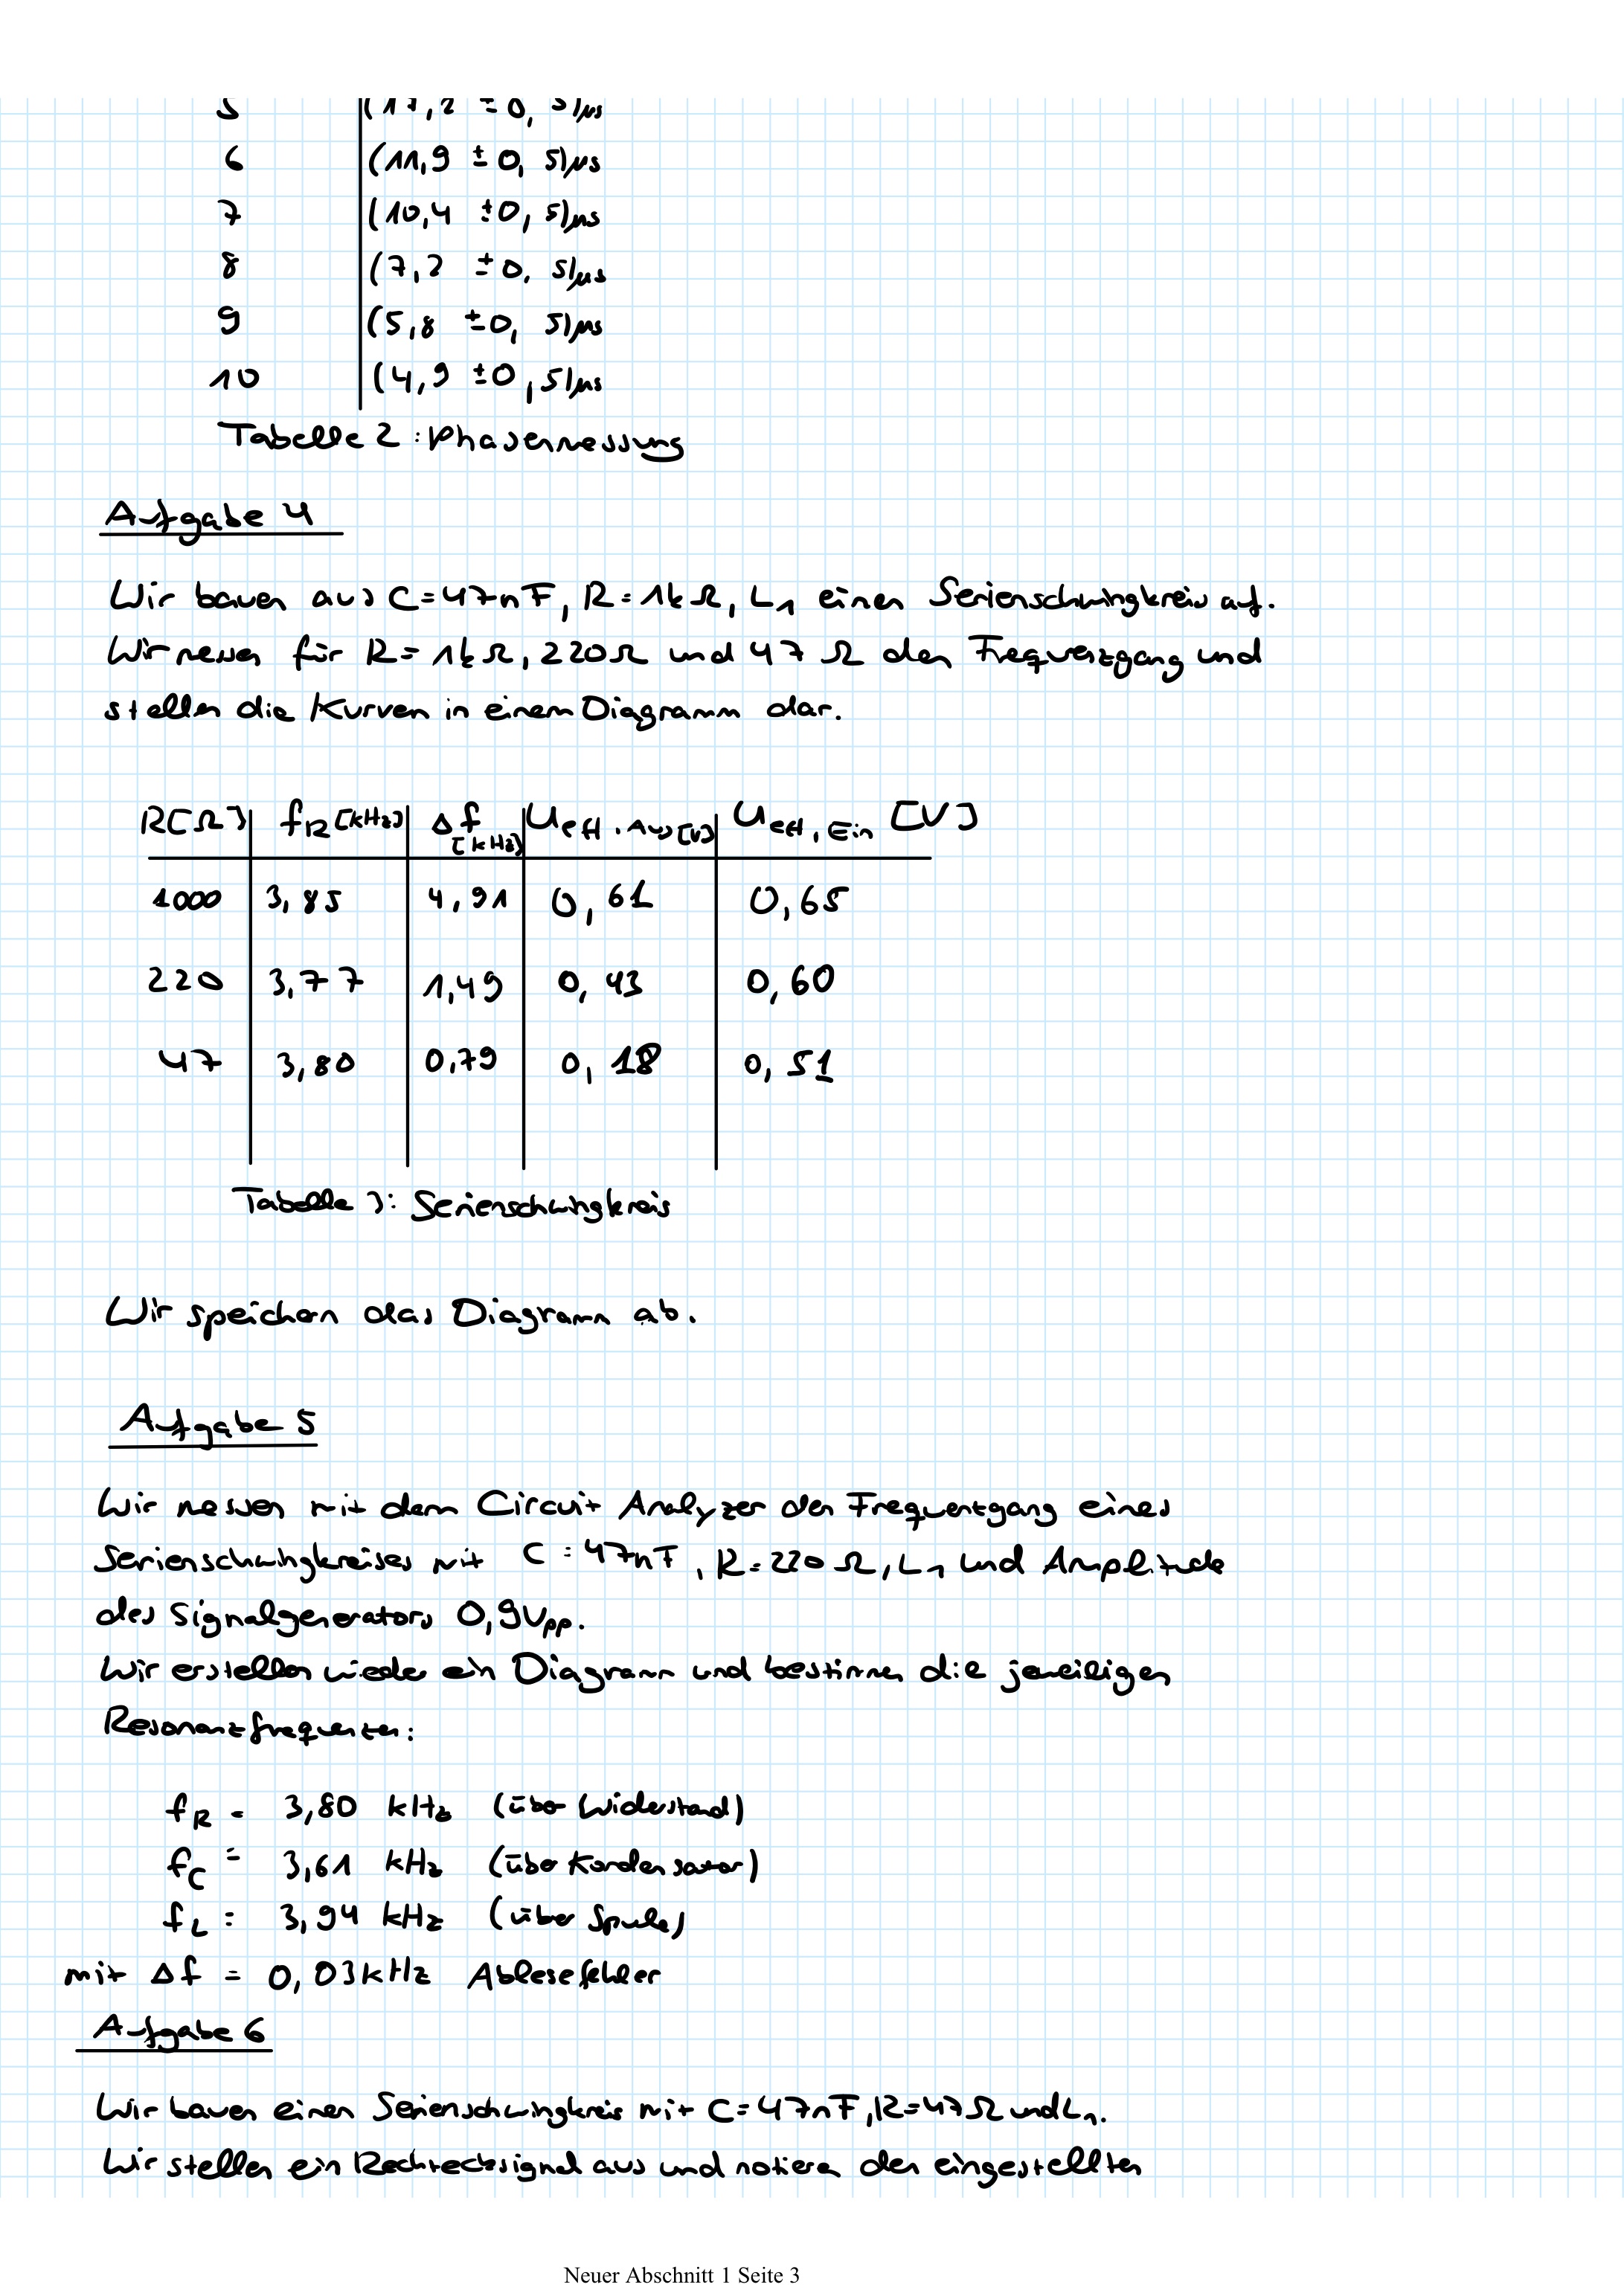 5 (17,2 ±0,5)µs
6 (11,9 ±0,5)µs
7 (10,4 ±0,5)µs
8 (7,2 ±0,5)µs
9 (5,8 ±0,5)µs
10 (4,9 ±0,5)µs
Tabelle 2: Phasenmessung
Aufgabe 4
Wir bauen aus C=47nF, R=1kΩ, L₁ einen Serienschwingkreis auf.
Wir messen für R=1kΩ, 220Ω und 47Ω den Frequenzgang und
stellen die Kurven in einem Diagramm dar.
R[Ω] f_R [kHz] Δf [kHz] U_eff, Aus [V] U_eff, Ein [V]
1000 3,85 4,91 0,61 0,65
220 3,77 1,49 0,43 0,60
47 3,80 0,79 0,18 0,51
Tabelle 3: Serienschwingkreis
Wir speichern das Diagramm ab.
Aufgabe 5
Wir messen mit dem Circuit Analyzer den Frequenzgang eines
Serienschwingkreises mit C=47nF, R=220Ω, L₁ und Amplitude
des Signalgenerators 0,9Vpp.
Wir erstellen wieder ein Diagramm und bestimmen die jeweiligen
Resonanzfrequenzen:
f_R = 3,80 kHz (über Widerstand)
f_C = 3,61 kHz (über Kondensator)
f_L = 3,94 kHz (über Spule)
mit Δf = 0,03kHz Ablesefehler
Aufgabe 6
Wir bauen einen Serienschwingkreis mit C=47nF, R=47Ω und L₁.
Wir stellen ein Rechtecksignal aus und notieren den eingestellten
Neuer Abschnitt 1 Seite 3